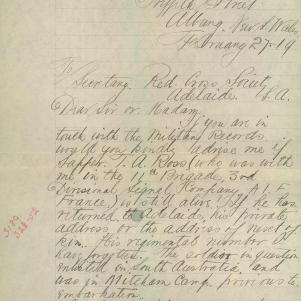 Street
Albury. New S. Wales
February 27-19
To
Secretary Red Cross Society
Adelaide S.A.
Dear Sir or Madam,
If you are in
touch with the Military Records
would you kindly advise me if
Sapper. T. A. Ross (who was with
me in the 11th Brigade, 3rd
Divisional Signal Company, A.I.F
France,) is still alive. If he has
returned to Adelaide, his private
address, or the address of next of
kin. His regimental number I
have forgotten. The soldier in question
enlisted in South Australia, and
was in Mitcham Camp previous to
embarkation.